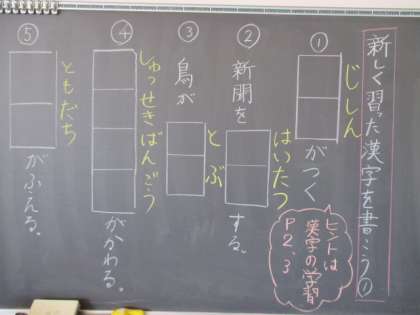 新しく習った漢字を書こう①
① じしん がつく
ヒントは
漢字の学習
P2、3
② 新聞を はいたつ する。
③ 鳥が とぶ
④ しゅっせきばんごう がかわる。
⑤ ともだち がふえる。